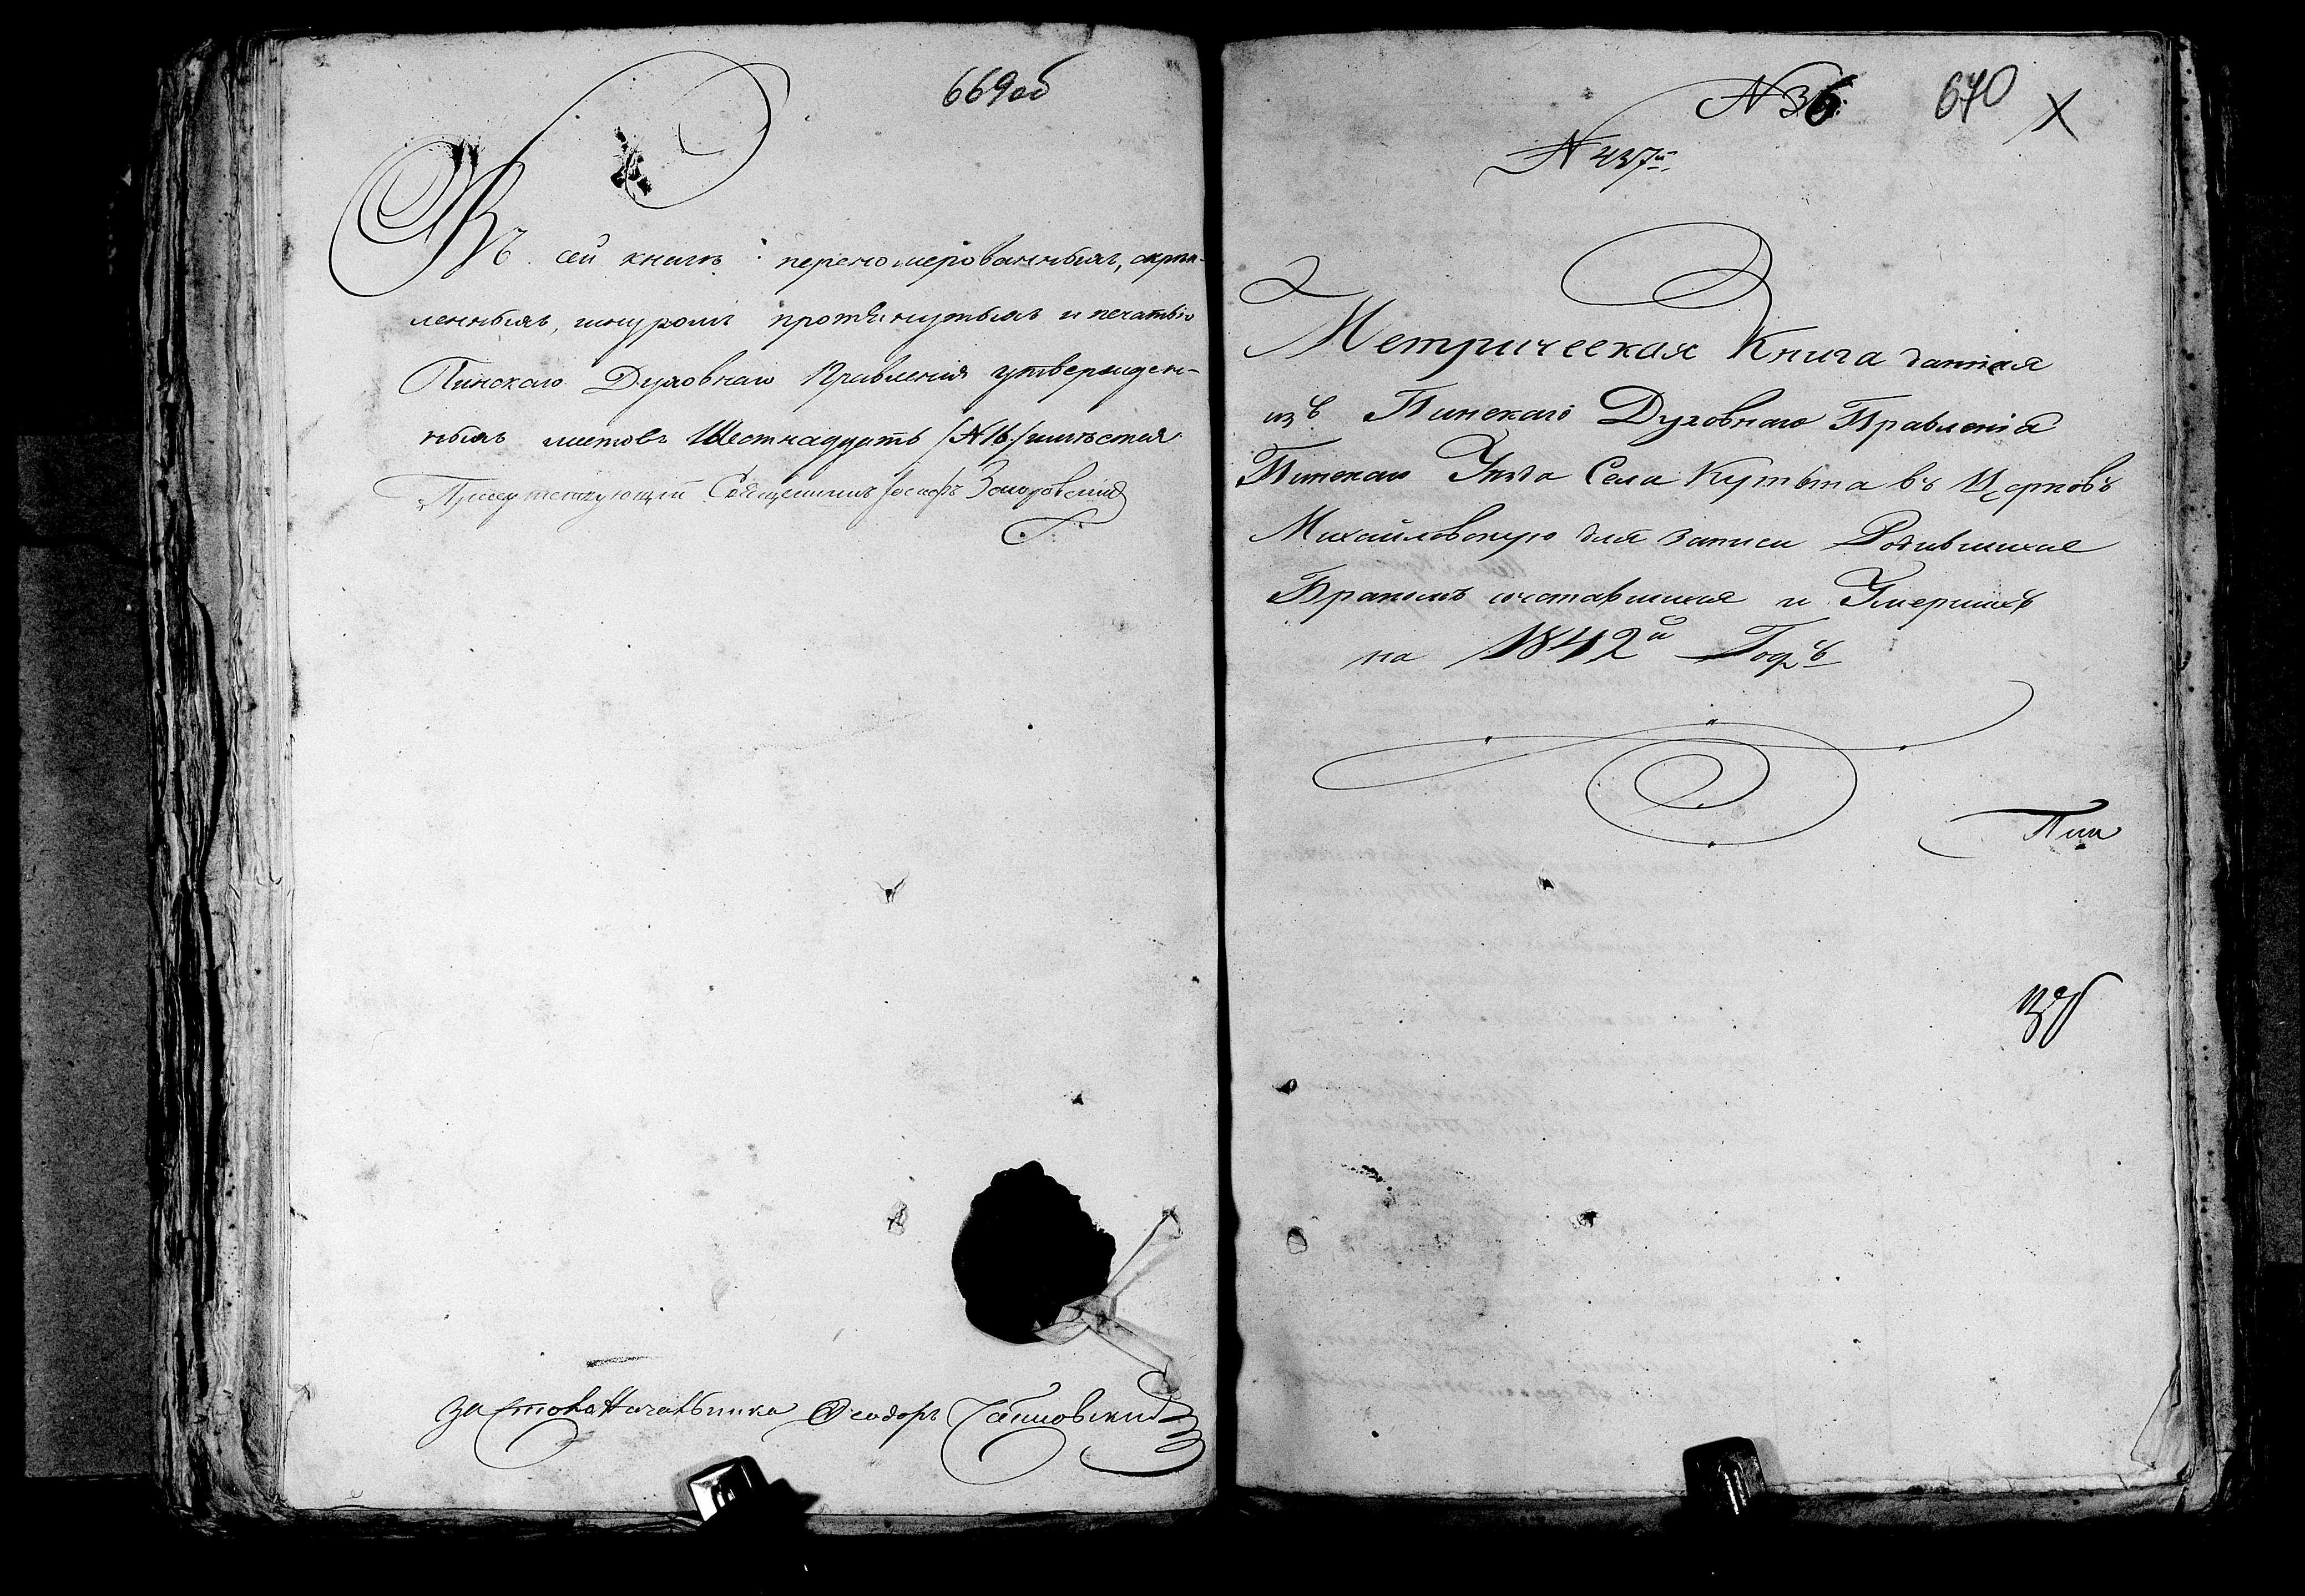 669об
Въ сей книгѣ перенумерованныхъ, скрѣп-
ленныхъ, шнуромъ протянутыхъ и печатью
Пинскаго Духовнаго Правленія утвержден-
ныхъ листовъ Шестнадцать /№ 16./
Присутствующій Священникъ Іосифъ
за Столоначальника Ѳеодоръ
№ 36 670 X
№ 437й
Метрическая Книга данная
изъ Пинскаго Духовнаго Правленія
Пинскаго Уѣзда Села Кутыта въ Церковь
Михайловскую для записи Родившихся
Бракомъ сочетавшихся и Умершихъ
на 1842й Годъ
Пин